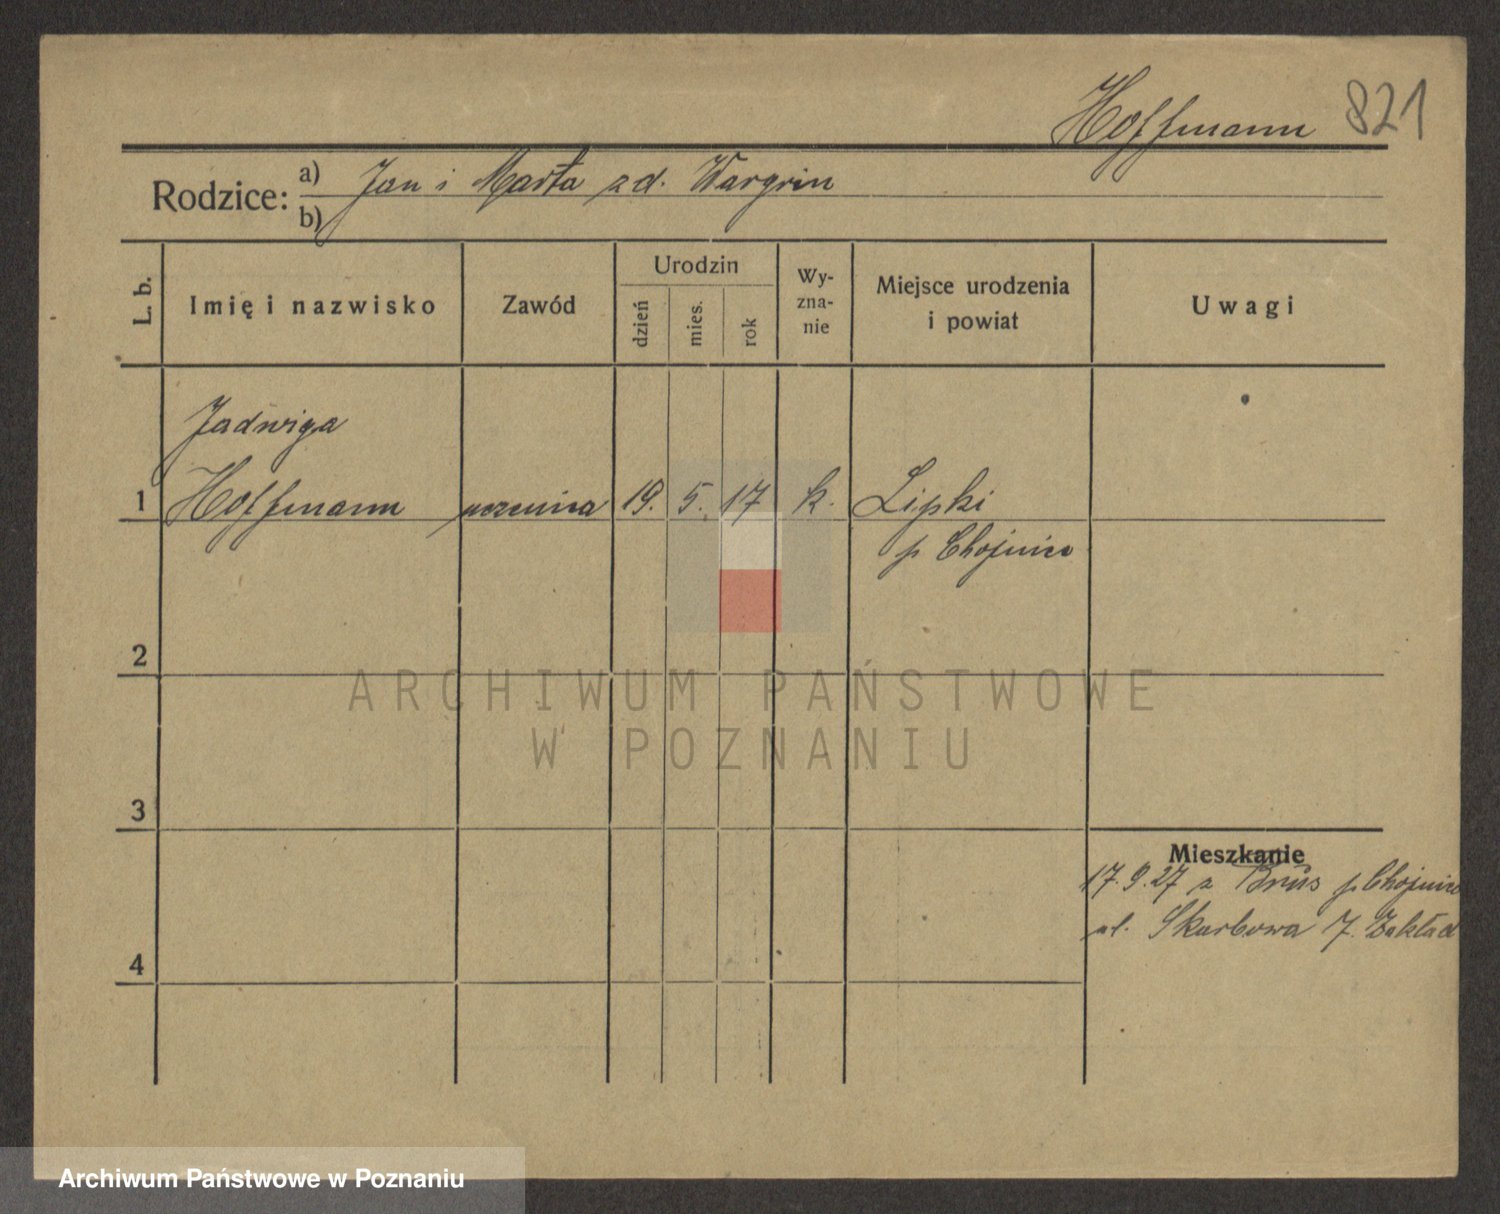 Hoffmann 821
Rodzice: a) Jan i Marta zd. Wargrin
b)
L. b.
Imię i nazwisko
Zawód
Urodzin
dzień
mies.
rok
Wy-
zna-
nie
Miejsce urodzenia
i powiat
Uwagi
Jadwiga
1 Hoffmann uczenica 19. 5. 17 k. Lipki
p Chojnice
2
ARCHIWUM PAŃSTWOWE
W POZNANIU
3
Mieszkanie
17.9.27 z Brus p. Chojnice
ul. Skarbowa 7. Zakład
4
Archiwum Państwowe w Poznaniu